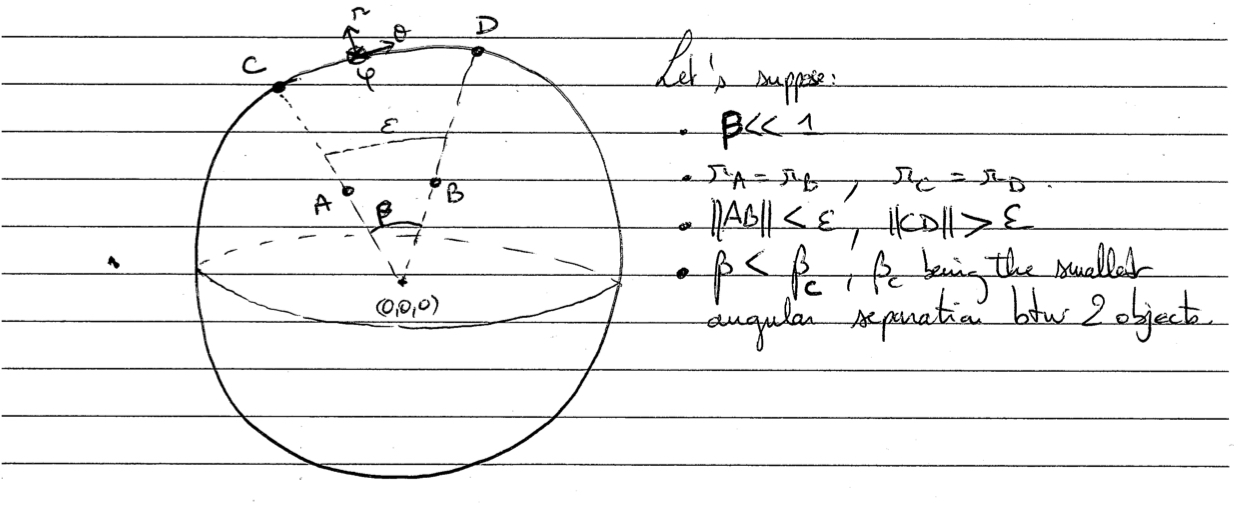 r
θ
D
C
φ
ε
A
B
β
(0,0,0)
Let's suppose:
• β<< 1
• r_A = r_B , r_C = r_D .
• ||AB|| < ε , ||CD|| > ε
• β < β_C , β_C being the smallest
angular separation btw 2 objects.